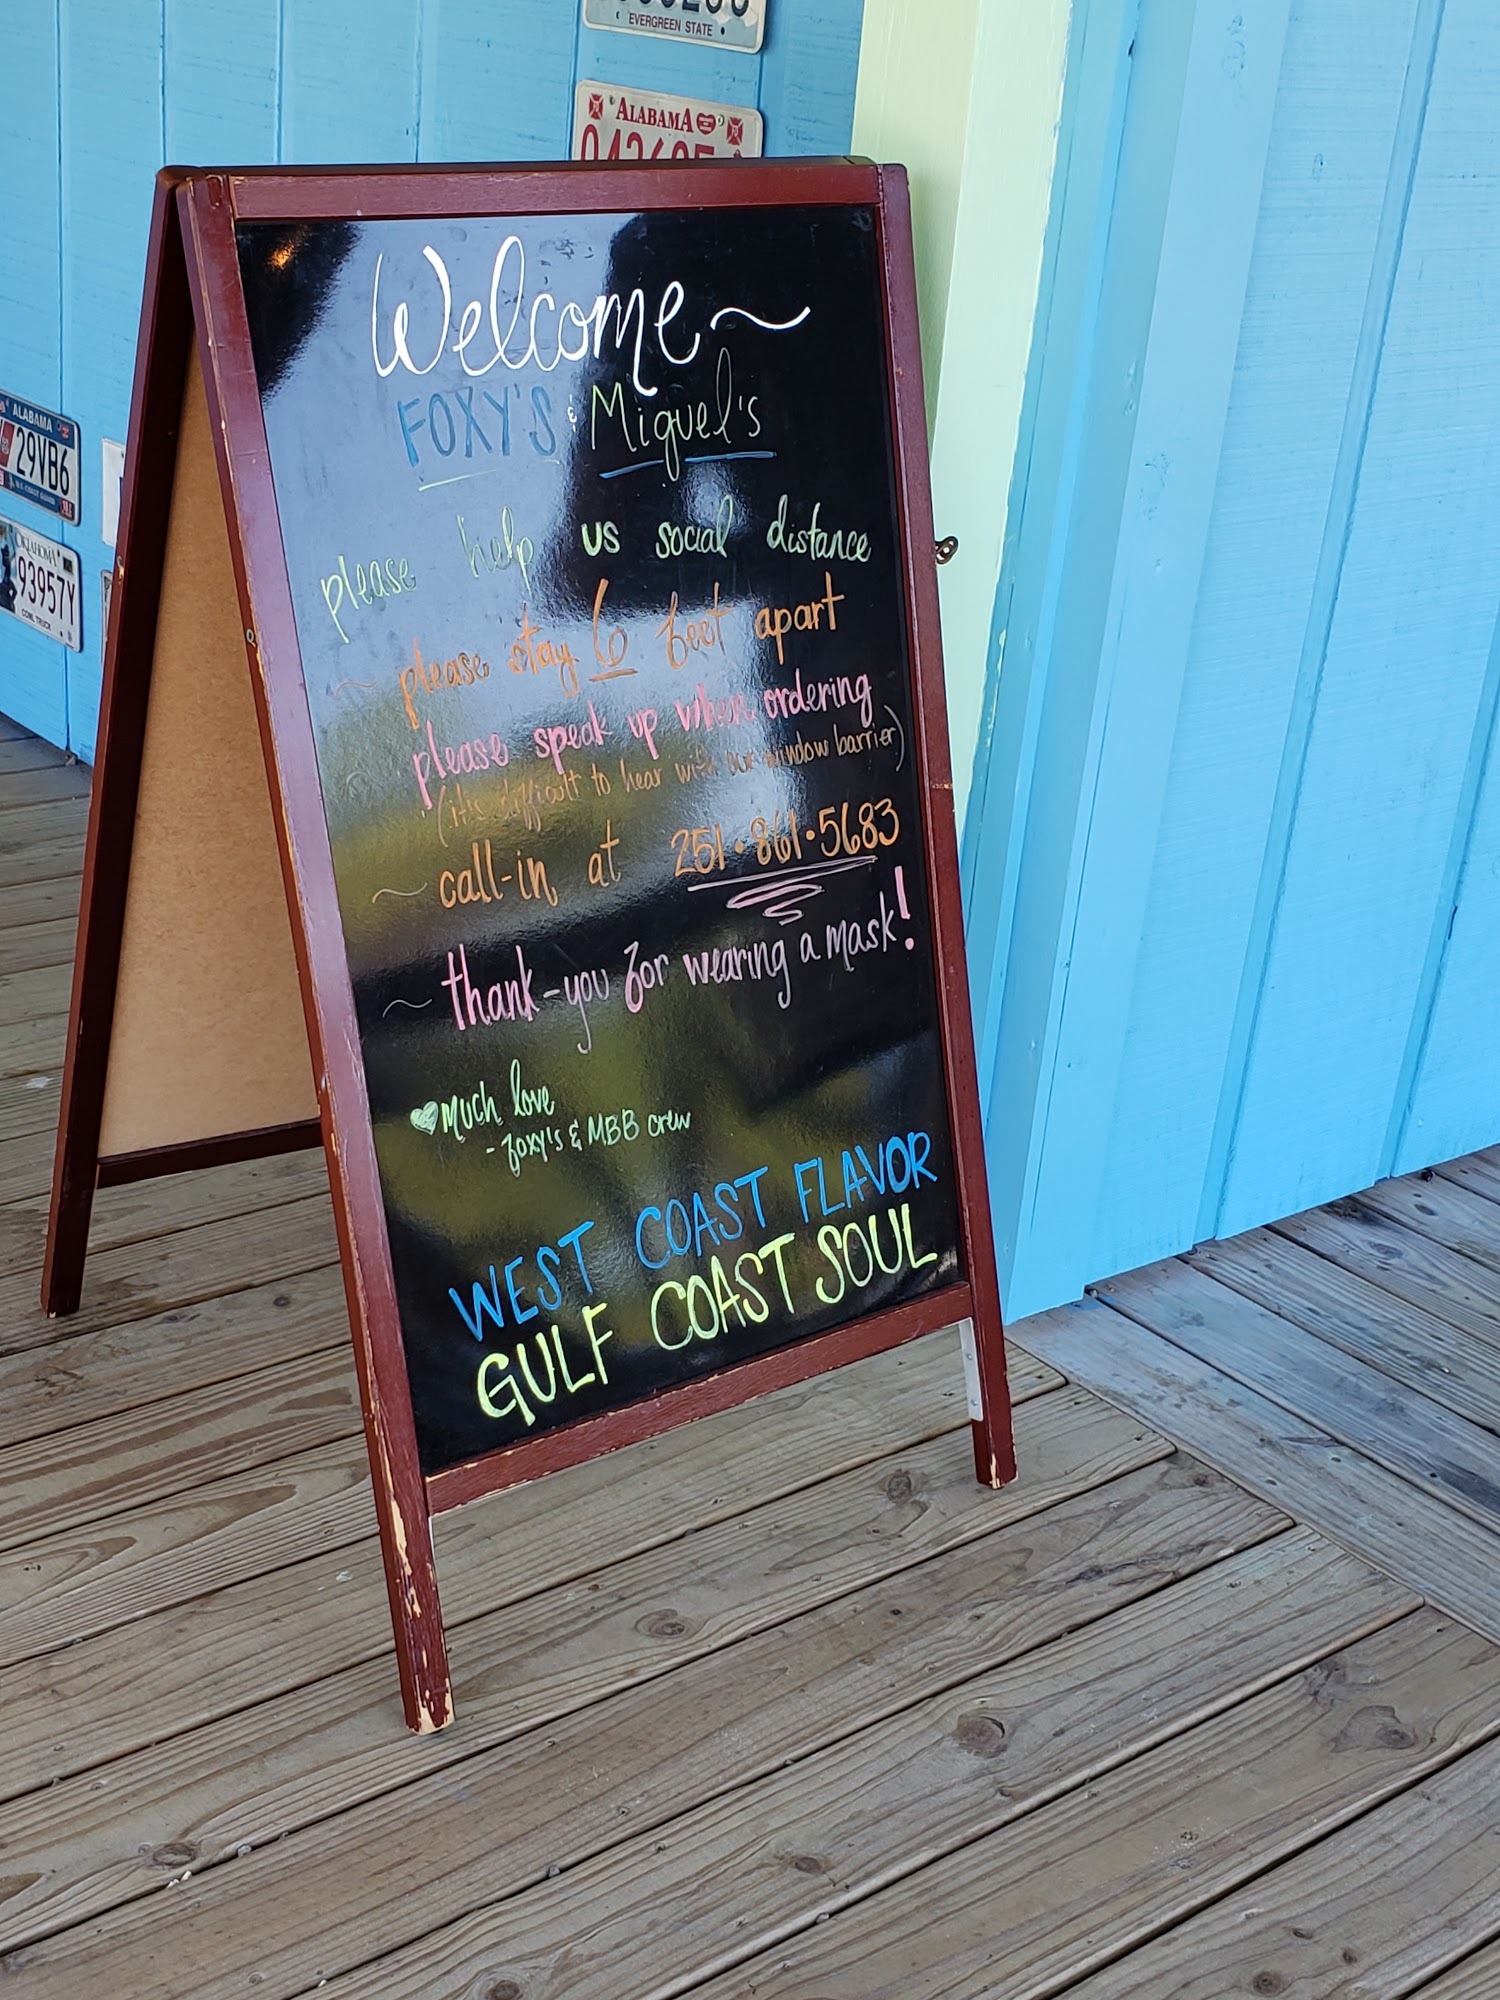 EVERGREEN STATE
ALABAMA
Welcome~
FOXY'S & Miguel's
please help us social distance
~ please stay 6 feet apart
~ please speak up when ordering
(it's difficult to hear with our window barrier)
~ call-in at 251•861•5683
~ thank-you for wearing a mask!
♥ Much love
- Foxy's & MBB crew
WEST COAST FLAVOR
GULF COAST SOUL
ALABAMA
29VB6
OKLAHOMA
93957Y
COML TRUCK